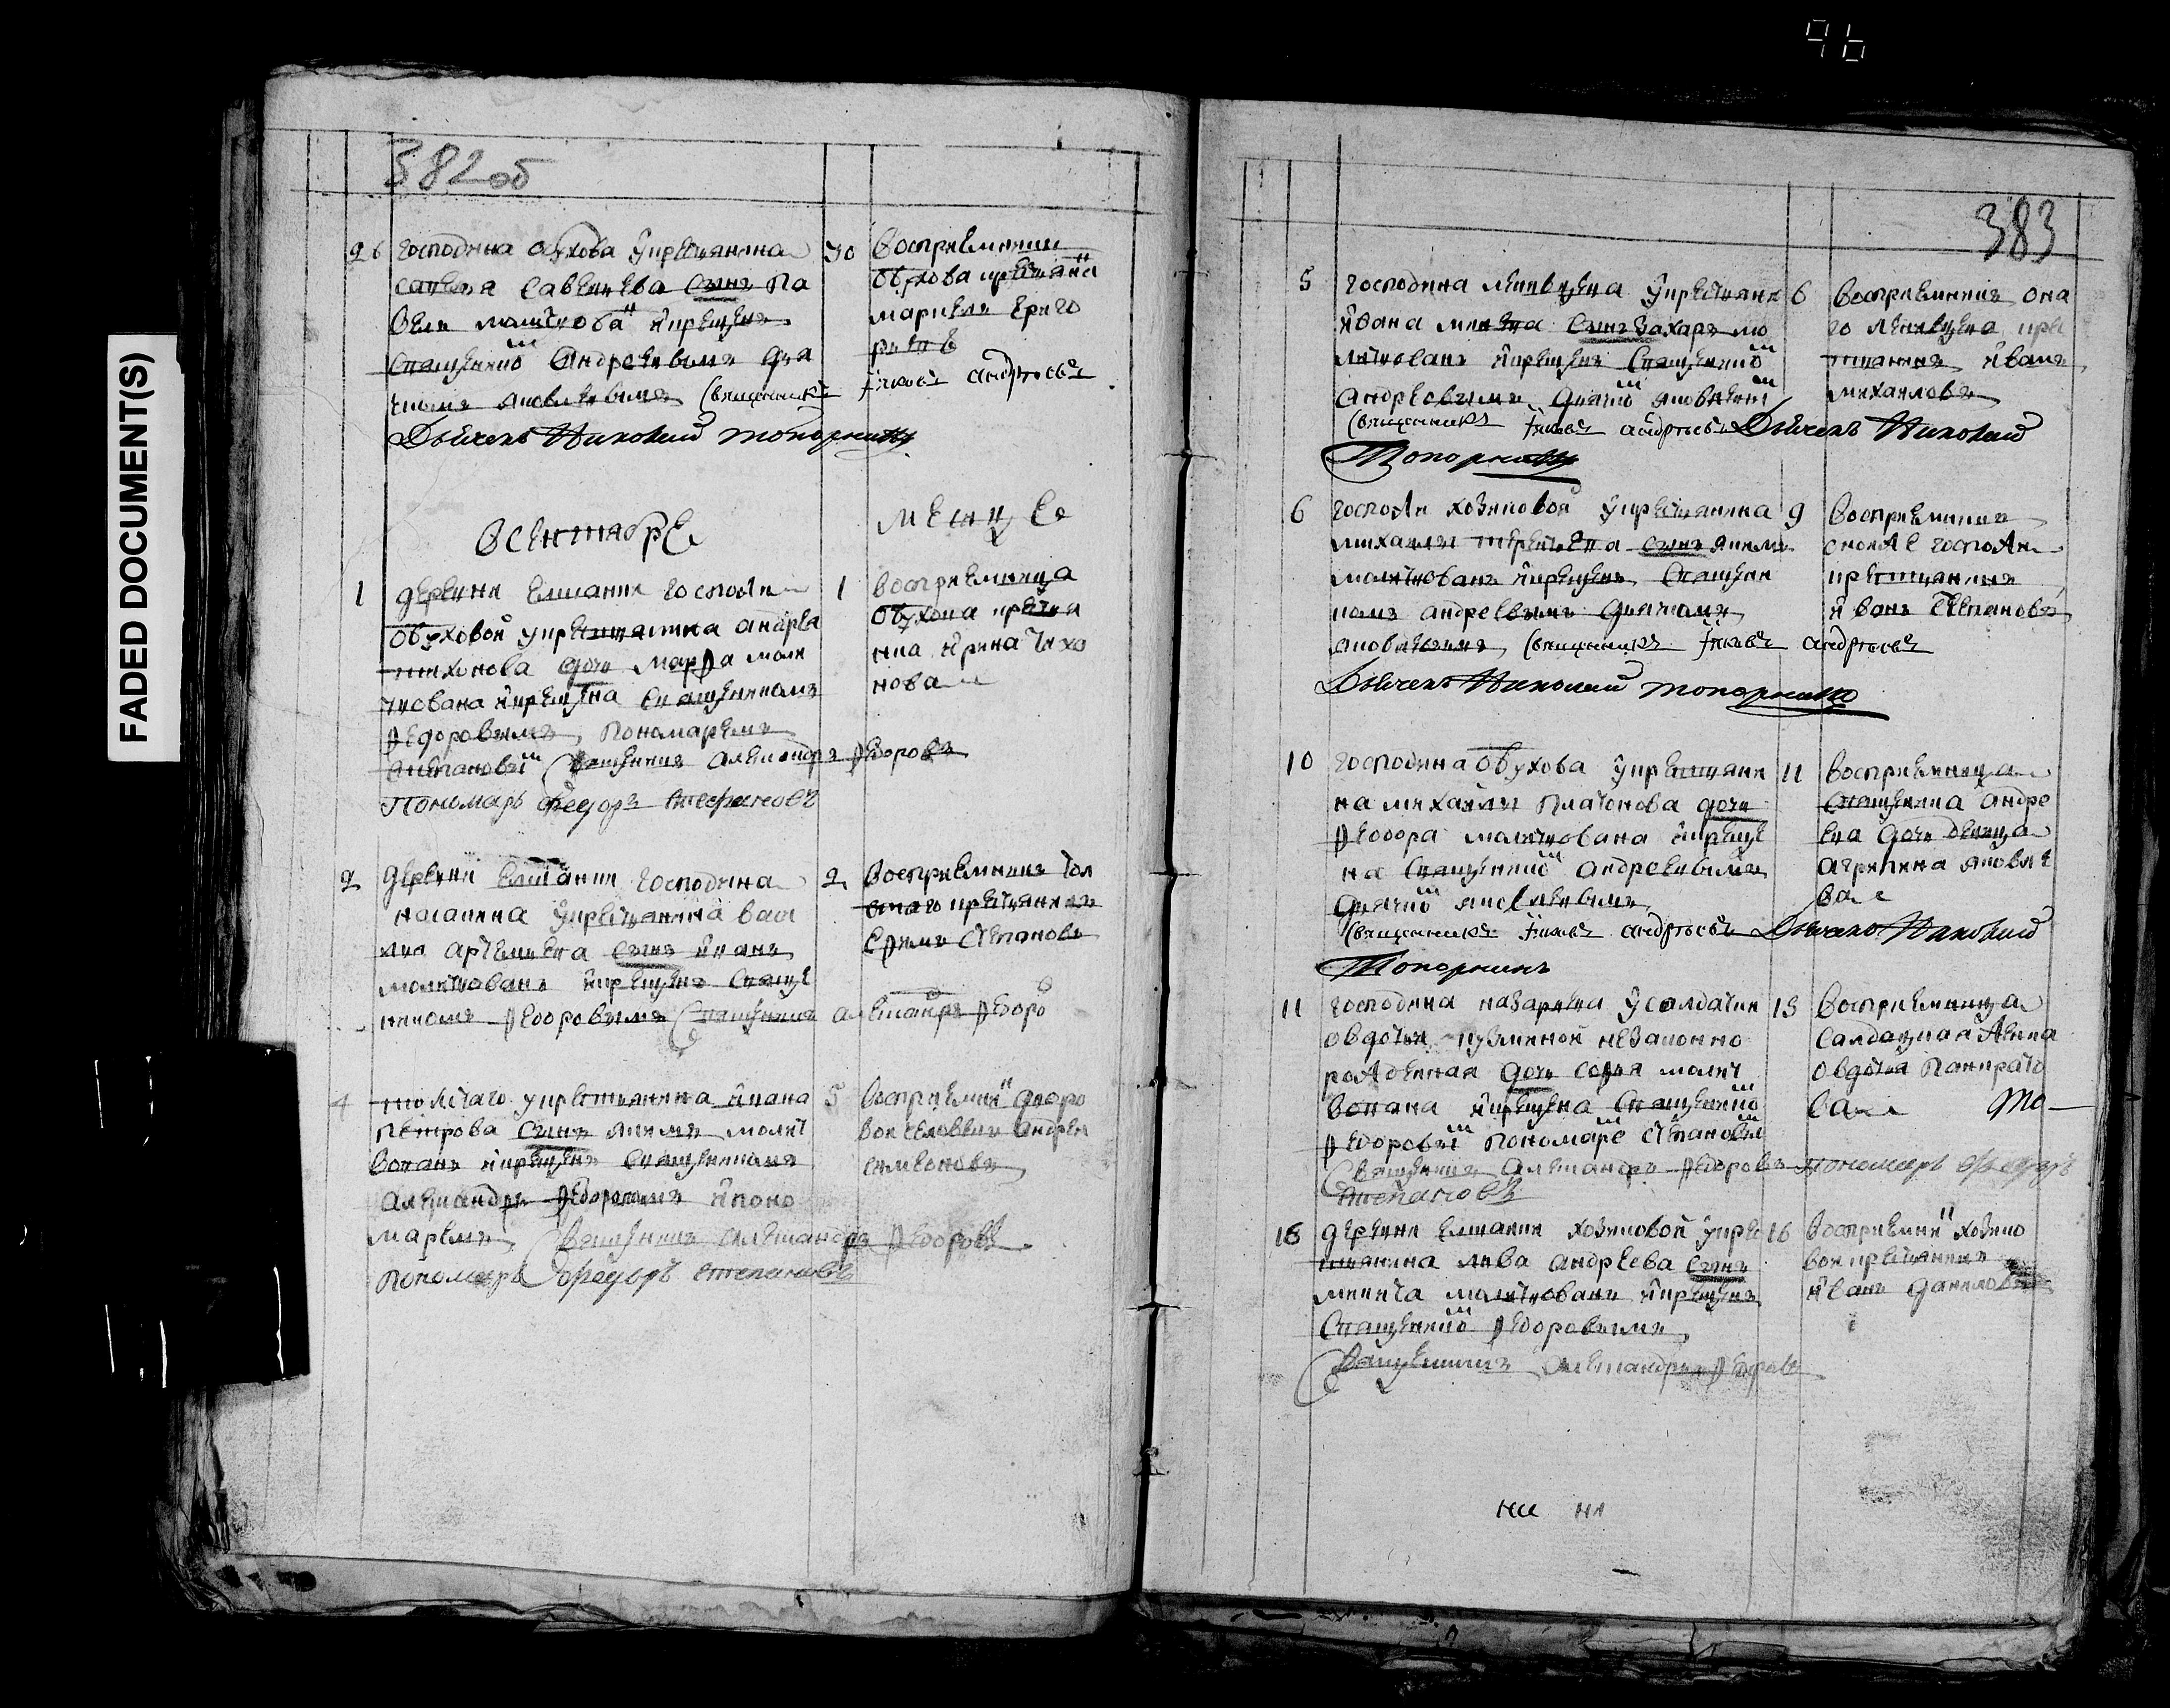 FADED DOCUMENT(S)
96
382 об
26 господина обухова укрестьянина
савелиева сынъ па
велъ молитвова икрещенъ
священно Андреевымъ дья
чкомъ яковлевымъ священникъ Iяковъ андреевъ
Дьячекъ Николай топорнинъ
30 Восприемникъ
обухова крестьяни
григо
Всентябре
месяце
1 деревни елшанки госпожи
обуховой укрестьянина андрея
тихонова дочь марфа моли
твована икрещена священникомъ
федоровымъ пономаремъ
степановы священникъ александръ федоровъ
Пономарь Федоръ Стефановъ
1 восприемница
обухова крестья
нка ирина тихо
нова
2 деревни елшанки господина
укрестьянина васи
лия артемиева сынъ иванъ
молитвованъ икрещенъ свяще
нникомъ федоровымъ священникъ александръ федоро
2 восприемникъ тол
стаго крестьянинъ
ефимъ степановъ
4 толстаго укрестьянина ивана
петрова сынъ якимъ молит
вованъ икрещенъ священникомъ
александръ федоровымъ ипоно
маремъ священникъ александръ федоровъ
Пономарь Федоръ степановъ
5 восприемни дворо
вой человекъ андрей
семеоновъ
383
5 господина укрестьяни
ивана сынъ захаръ мо
литвованъ икрещенъ священно
андреевымъ дьячко яковлевы
священникъ Iяковъ андреевъ Дьячекъ Николай
Топорнинъ
6 восприемникъ она
го кре
стьянинъ иванъ
михаиловъ
6 госпожи козиковой укрестьянина
михаилы терентьева сынъ якимъ
молитвованъ икрещенъ священ
никомъ андреевымъ дьячкомъ
яковлевымъ священникъ Iяковъ андреевъ
Дьячекъ Николай топорнинъ
9 восприемникъ
оноя же госпожи
крестьянинъ
иванъ степановъ
10 господина обухова укрестьяни
на михаилы платонова дочь
феодора молитвована икреще
на священнико андреевымъ
дьячко яковлевымъ
священникъ Iяковъ андреевъ Дьячекъ Николай
Топорнинъ
11 восприемница
священника андре
ева дочь девица
агрипина яковле
ва
11 господина назарьева усолдатки
овдотьи кузминой незаконно
рожденная дочь софья молит
вована икрещена священнико
федоровы пономаре степановы
священникъ александръ федоровъ пономарь федоръ
степановъ
13 восприемница
салдацкая женка
овдотья панкрато
ва
16 деревни елшанки козиковой укре
стьянина льва андреева сынъ
никита молитвованъ икрещенъ
священнико федоровымъ
священникъ александръ федоровъ
16 восприемни козико
вой крестьянинъ
иванъ даниловъ